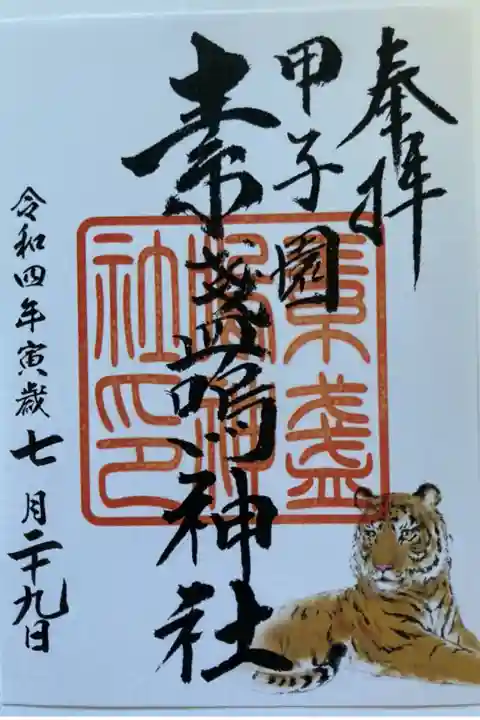 奉拝
甲子園
素盞嗚神社
素盞
嗚神
社印
令和四年寅歳七月二十九日